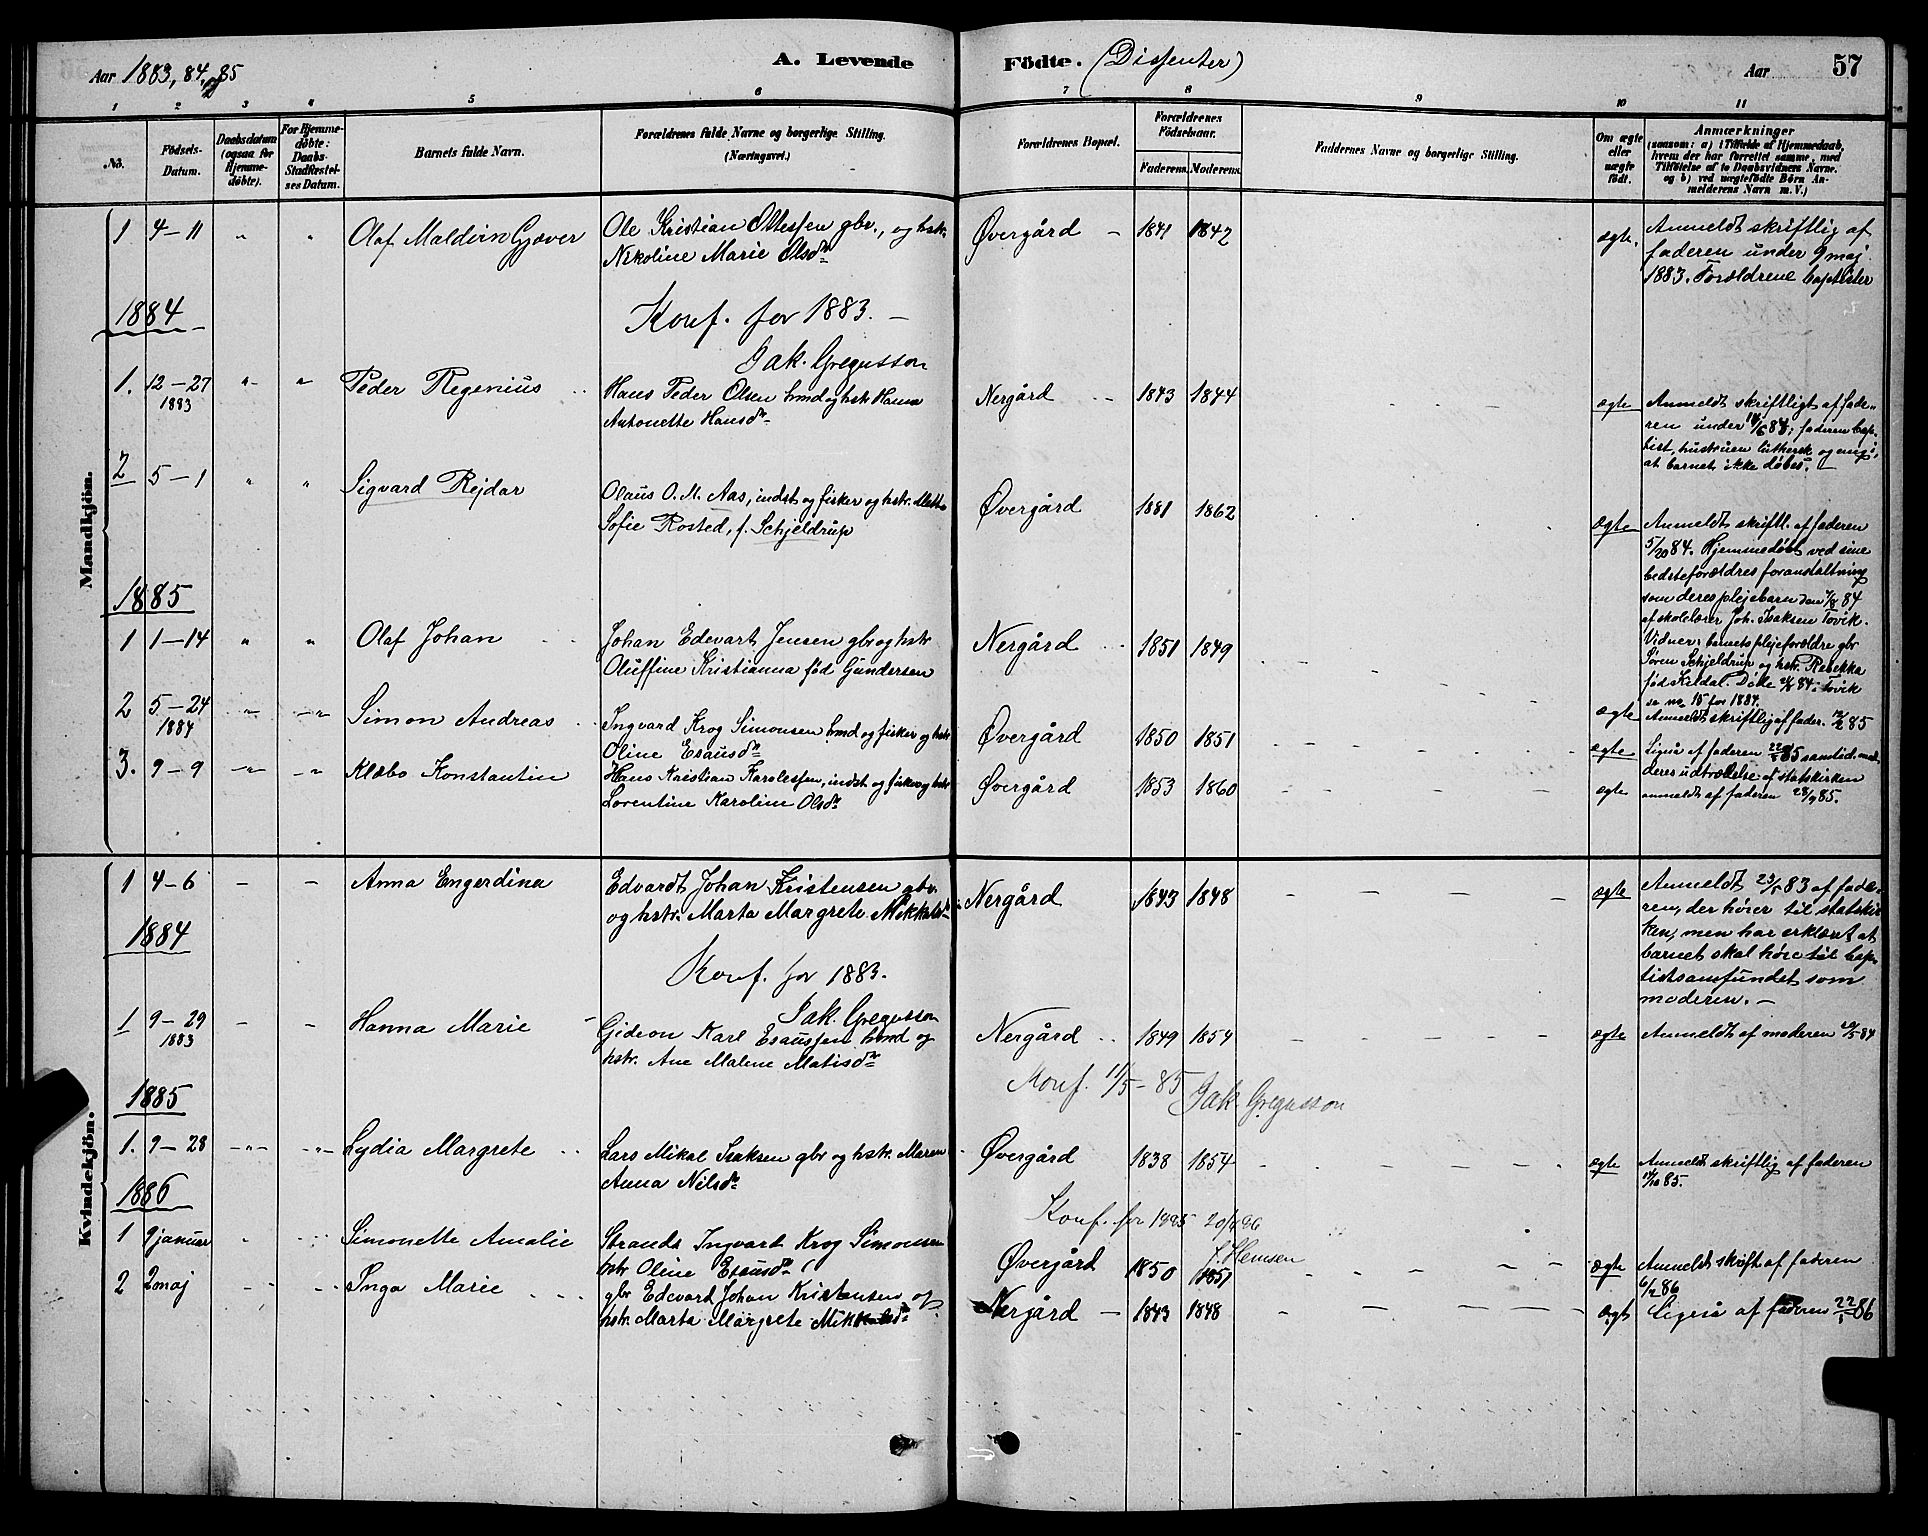 Aar 1883, 84, 85
A. Levende
Födte. (Dissenter)
Aar
57
1 2 3 4 5 6 7 8 9 10 11
No.
Födsels-
Datum.
Daabsdatum
(ogsaa for
Hjemme-
döbte).
For Hjemme-
döbte:
Daabs-
Stadfæstel-
ses Datum.
Barnets fulde Navn.
Forældrenes fulde Navne og borgerlige Stilling.
(Næringsvei.)
Forældrenes Bopæl.
Forældrenes
Födselsaar.
Faderens. Moderens.
Faddernes Navne og borgerlige Stilling.
Om ægte
eller
uægte
födt.
Anmærkninger
(saasom: a) i Tilfælde af Hjemmedaab,
hvem der har forrettet samme, med
Tilföielse af to Daabsvidners Navne.
og b) ved uægtefödte Börn An-
melderens Navn m. V.)
Mandkjön.
1 4-11 " " Olaf Maldvin Gjæver
Ole Kristian Ottessen gbr., og hstr.
Nikoline Marie Olsdr
Øvergård - 1841 1842
ægte.
Anmeldt skriftlig af
faderen under 9 maj
1883. Forældrene baptister
1884
Konf. for 1883. -
Jak. Gregusson
1. 12-27 " " Peder Regenius
1883
Hans Peder Olsen hmd og hstr. Hanna
Antonette Hansdr
Nergård - 1843 1844
ægte
Anmeldt skriftligt af fade-
ren under 84; faderen bap-
tist, hustruen luthersk og enig i
at barnet ikke døbes.
2 5-1 " " Sigvard Rejdar
Olaus O. M. Aas, indst. og fisker og hstr. Mette
Sofie Rosted, f. Schjeldrup
Øvergård 1881 1862
ægte
Anmeldt skriftl. af faderen
5/20 84. Hjemmedøbt ved sine
bedsteforældres foranstaltning
som deres plejebarn den 84
af skolelærer Joh. Isaksen Tovik.
Vidner: barnets plejeforældre gbr
Søren Schjeldrup og hstr. Rebekka
fød Kildal. Døbt 84 i Tovik
se no 15 for 1884.
1885
1 1-14 " " Olaf Johan
Johan Edevart Jensen gbr og hstr
Oluffine Kristianna fød Gundersen
Nergård 1851 1849
ægte
Anmeldt skriftlig af fader. 85
2 5-24 " " Simon Andreas
1884
Ingvard Krog Simonsen hmd og fisker og hstr
Oline Esausdr
Øvergård 1850 1851
ægte
Ligeså af faderen 85 samtid. med
deres udtrædelse af statskirken
3. 9-9 " " Klæbo Konstantin
Hans Kristian Karolessen, indst. og fisker og hstr
Lorentine Karoline Olsdr
Øvergård 1853 1860
ægte
anmeldt af faderen 28/9 85.
Kvindekjön.
1 4-6 - - Anna Engerdina
Edvardt Johan Kristensen gbr.
og hstr. Marta Margrete Mikkelsdr
Nergård 1843 1848
ægte
Anmeldt 23/5 83 af fade-
ren, der hører til statskir-
ken, men har erklæret at
barnet skal høre til bap-
tistsamfundet som
moderen. -
1884
Konf. for 1883.
Jak. Gregusson
1 9-29 - - Hanna Marie
1883
Gideon Karl Esaussen hmd og
hstr. Ane Malene Matisdr
Nergård 1849 1854
ægte Anmeldt af moderen 84
Konf. 11/5-85 Jak. Gregusson
1885
1. 9-28 " " Lydia Margrete
Lars Mikal Isaksen gbr og hstr. Maren
Anna Nilsdr
Øvergård 1838 1854
ægte
Anmeldt skriftlig af faderen
85.
1886
Konf. for 1885
1 9 januar Simonette Amalie
Strands. Ingvart Krog Simonsen
hstr Oline Esausdr
Øvergård 1850 1851
ægte Anmeldt skrift af faderen
6/2 86
2 2 maj Inga Marie
gbr Edevard Johan Kristensen og
hstr Marta Margrete Mikkelsdr
Nergård - 1843 1848
ægt Ligeså af faderen 86